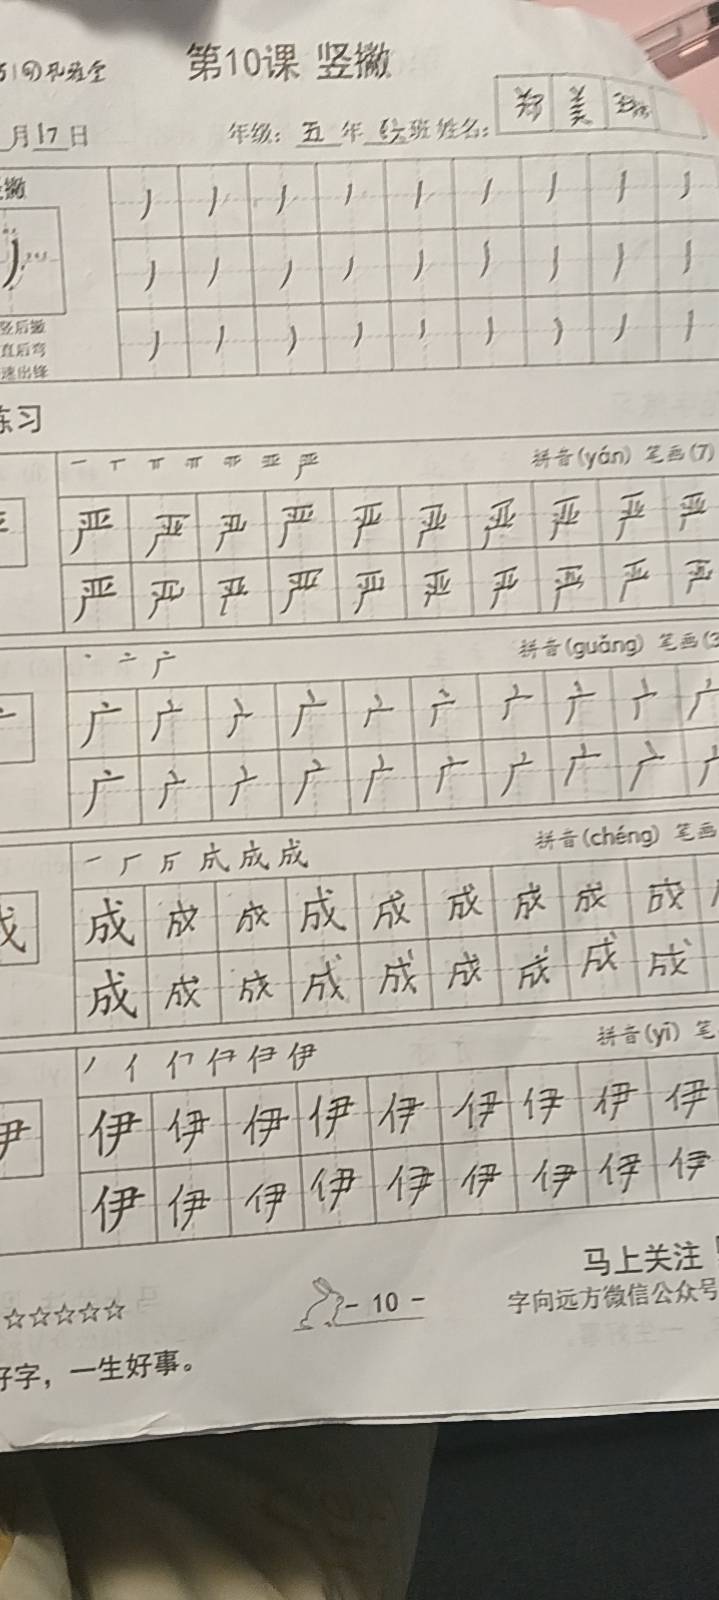 第10课 竖撇
月17日 年级：五年 班 姓名： 郑美
撇
竖后撇
直后弯
速出锋
练习
一 丅 丌 严 拼音(yán) 笔画(7)
严严严严严严严严严严
严严严严严严严严严严
丶 亠 广 拼音(guǎng) 笔画(3
广广广广广广广广广广
广广广广广广广广广广
一 厂 成 成 拼音(chéng) 笔画
成成成成成成成成成
成成成成成成成成成
丿 亻 伊 拼音(yī) 笔
伊伊伊伊伊伊伊伊伊
伊伊伊伊伊伊伊伊伊
马上关注
☆☆☆☆☆ - 10 - 字向远方微信公众号
好字，一生好事。